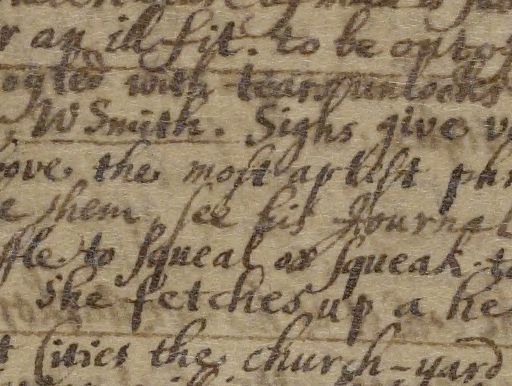 r an ill fit. to be out of
with tears unlocks
W Smith. Sighs give v
bove the most artlest phr
e them see his Journal
ffle to squeal or squeak. to
She fetches up a he
t Cities the church-yard